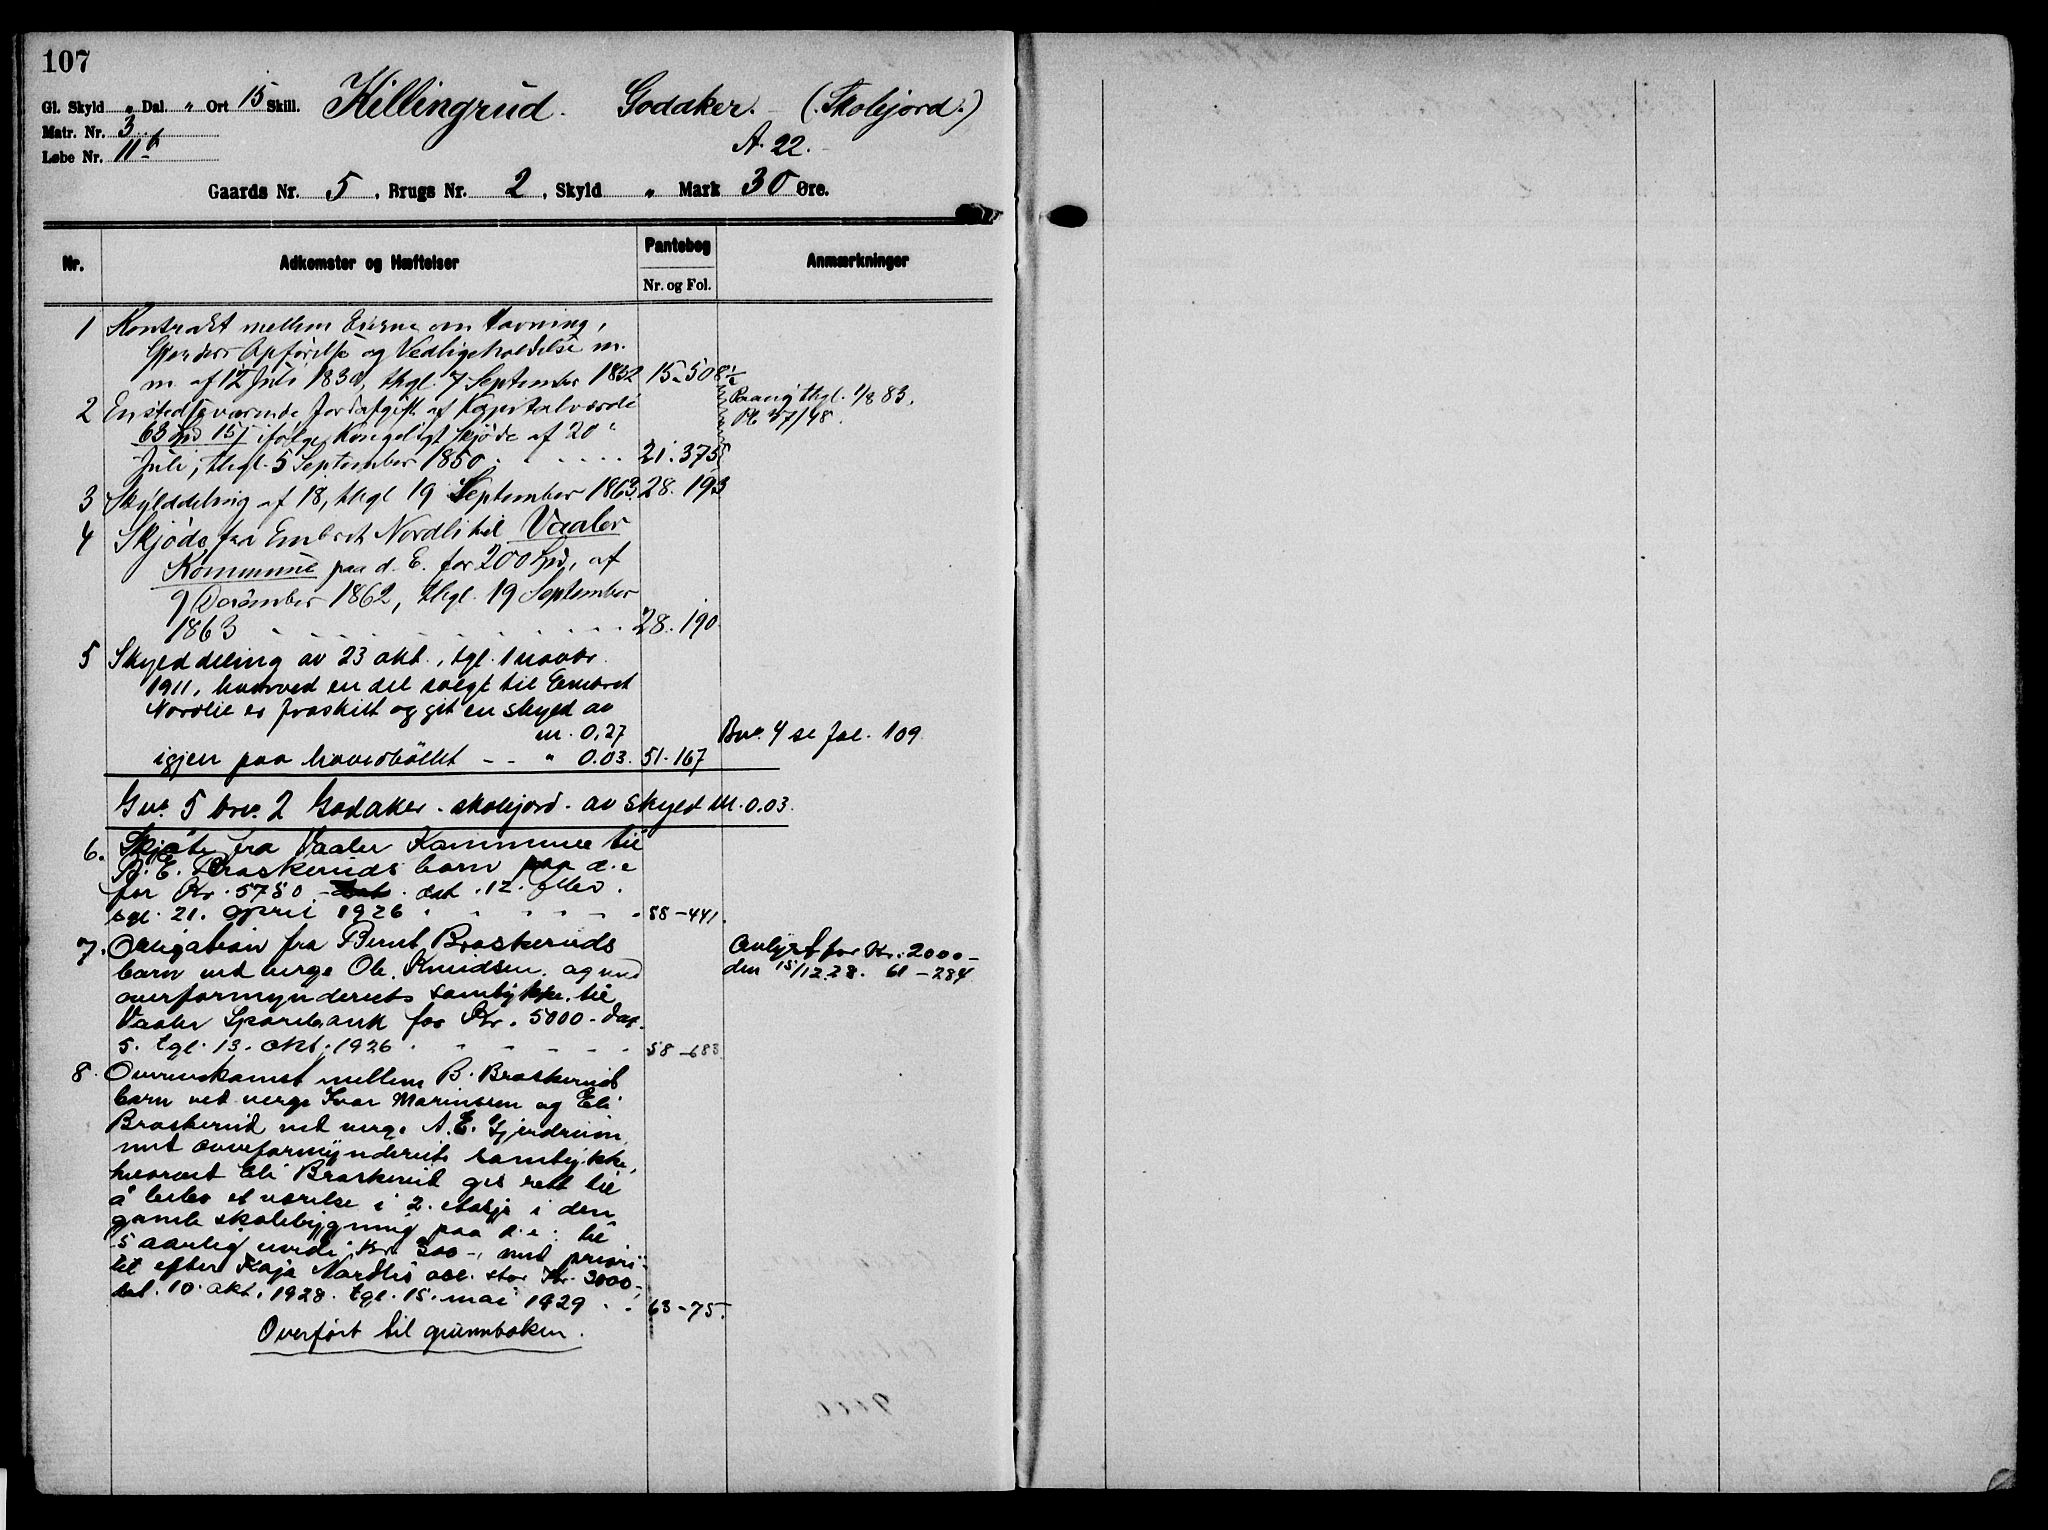 107
Gl. Skyld „ Dal. „ Ort 15 Skill. Killingrud. Godaker. (Skolejord.)
Matr. Nr. 3
Løbe Nr. 11 b A. 22.
Gaards Nr. 5, Brugs Nr. 2, Skyld „ Mark 30 Øre.
Nr. Adkomster og Hæftelser Pantebog Anmærkninger
Nr. og Fol.
1 Kontrakt mellem Eierne om Havning,
Gjerders Opførelse og Vedligeholdelse m.
m. af 12 Juli 1832, thgl. 7 September 1832 15-508½
2 En stedsevarende Jordafgift af Kapitalværdi thgl. 1/8 83.
63 Spd 15 ifølge Kongeligt Skjøde af 20
Juli, thgl. 5 September 1850 21. 375
3 Skylddeling af 18, thgl 19 September 1863 28. 193
4 Skjøde fra Embret Nordli til Vaaler
Kommune paa d. E. for 200 Spd, af
9 December 1862, thgl. 19 September
1863 28. 190
5 Skylddeling av 23 okt., tgl. 1 novbr.
1911, hvorved en del solgt til Embret
Nordlie er fraskilt og git en skyld av
m. 0.27 Bno. 4 se fol. 109
igjen paa hovedbøllet - - " 0.03. 51-167
Gno. 5 bno. 2 Godaker - skolejord - av skyld M. 0.03.
6. Skjøte fra Vaaler Kommune til
B. E. Braskeruds barn paa d. e
for Kr. 5750 dat. 12. febr.
tgl. 21. april 1926 58-441.
7. Obligation fra Bernt Braskeruds Avlyst for Kr. 2000-
barn ved verge Ole Knudsen og med den 15/12 28. 61-284
overformynderiets samtykke til
Vaaler Sparebank for Kr. 5000- dat.
5. tgl. 13. okt. 1926 58-683
8. Overenskomst mellem B. Braskerud
barn ved verge Ivar Marinssen og Eli
Braskerud ved verge A. E. Gjerdrum
med overformynderiets samtykke,
hvorved Eli Braskerud ges rett til
å bebo et værelse i 2. etasje i den
gamle skolebygning paa d. e. til
5 aarlig verdi Kr 300-, med priori-
tet efter Kaja Nordlis obl. stor Kr. 3000-,
dat. 10. okt. 1928. tgl. 15. mai 1929 63-75.
Overført til grunnboken.